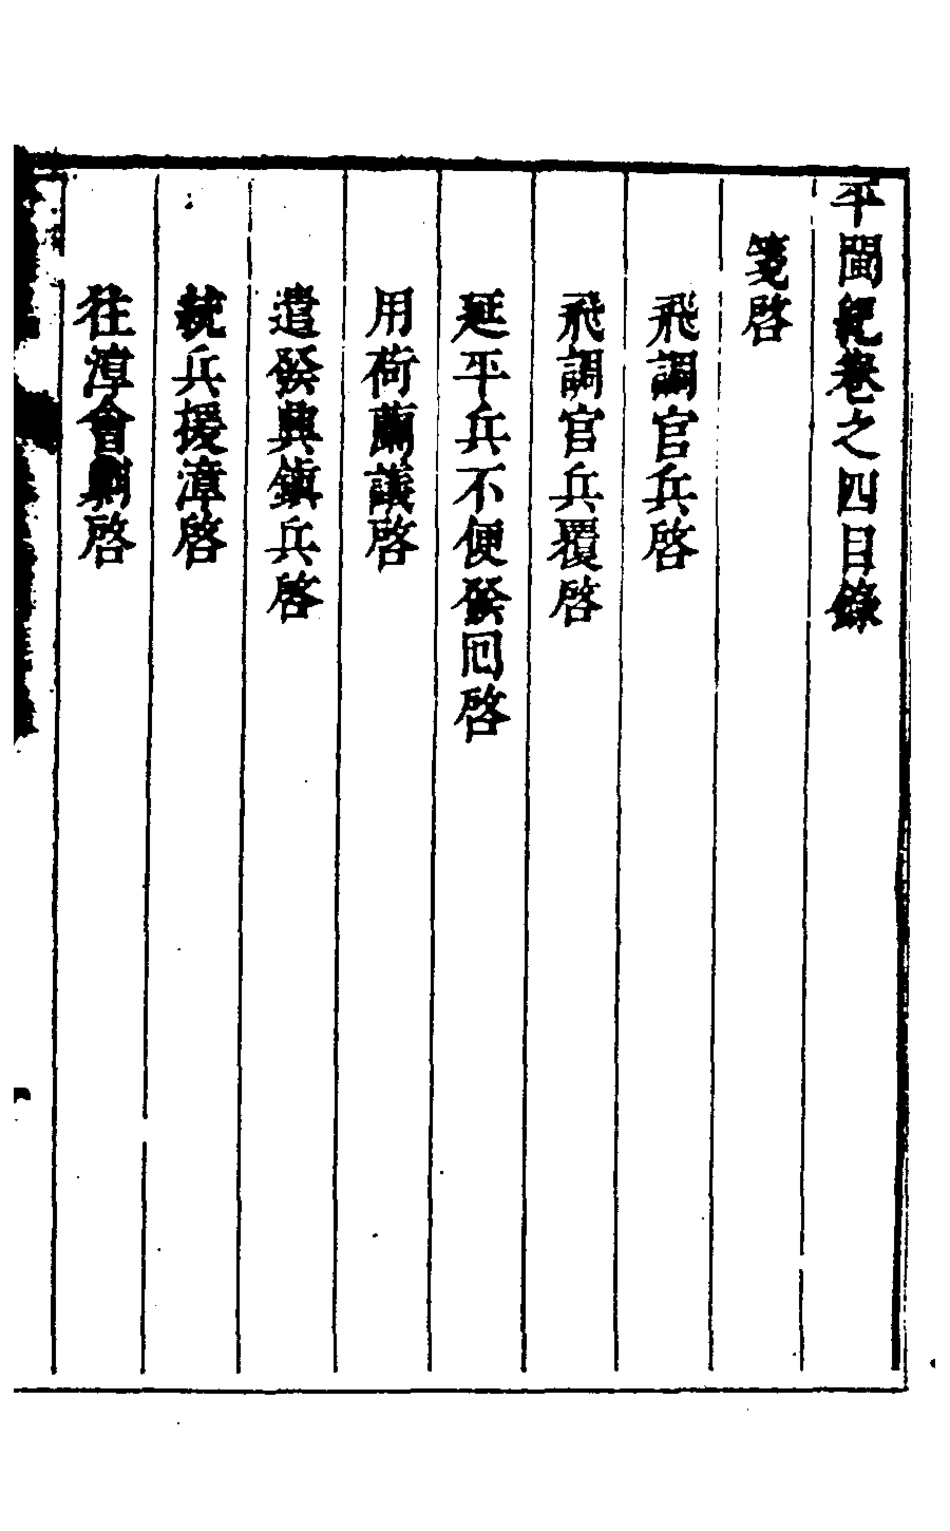 平閩紀卷之四目錄
箋啓
飛調官兵啓
飛調官兵覆啓
延平兵不便發回啓
用荷蘭議啓
遣發興鎮兵啓
統兵援漳啓
往漳會剿啓